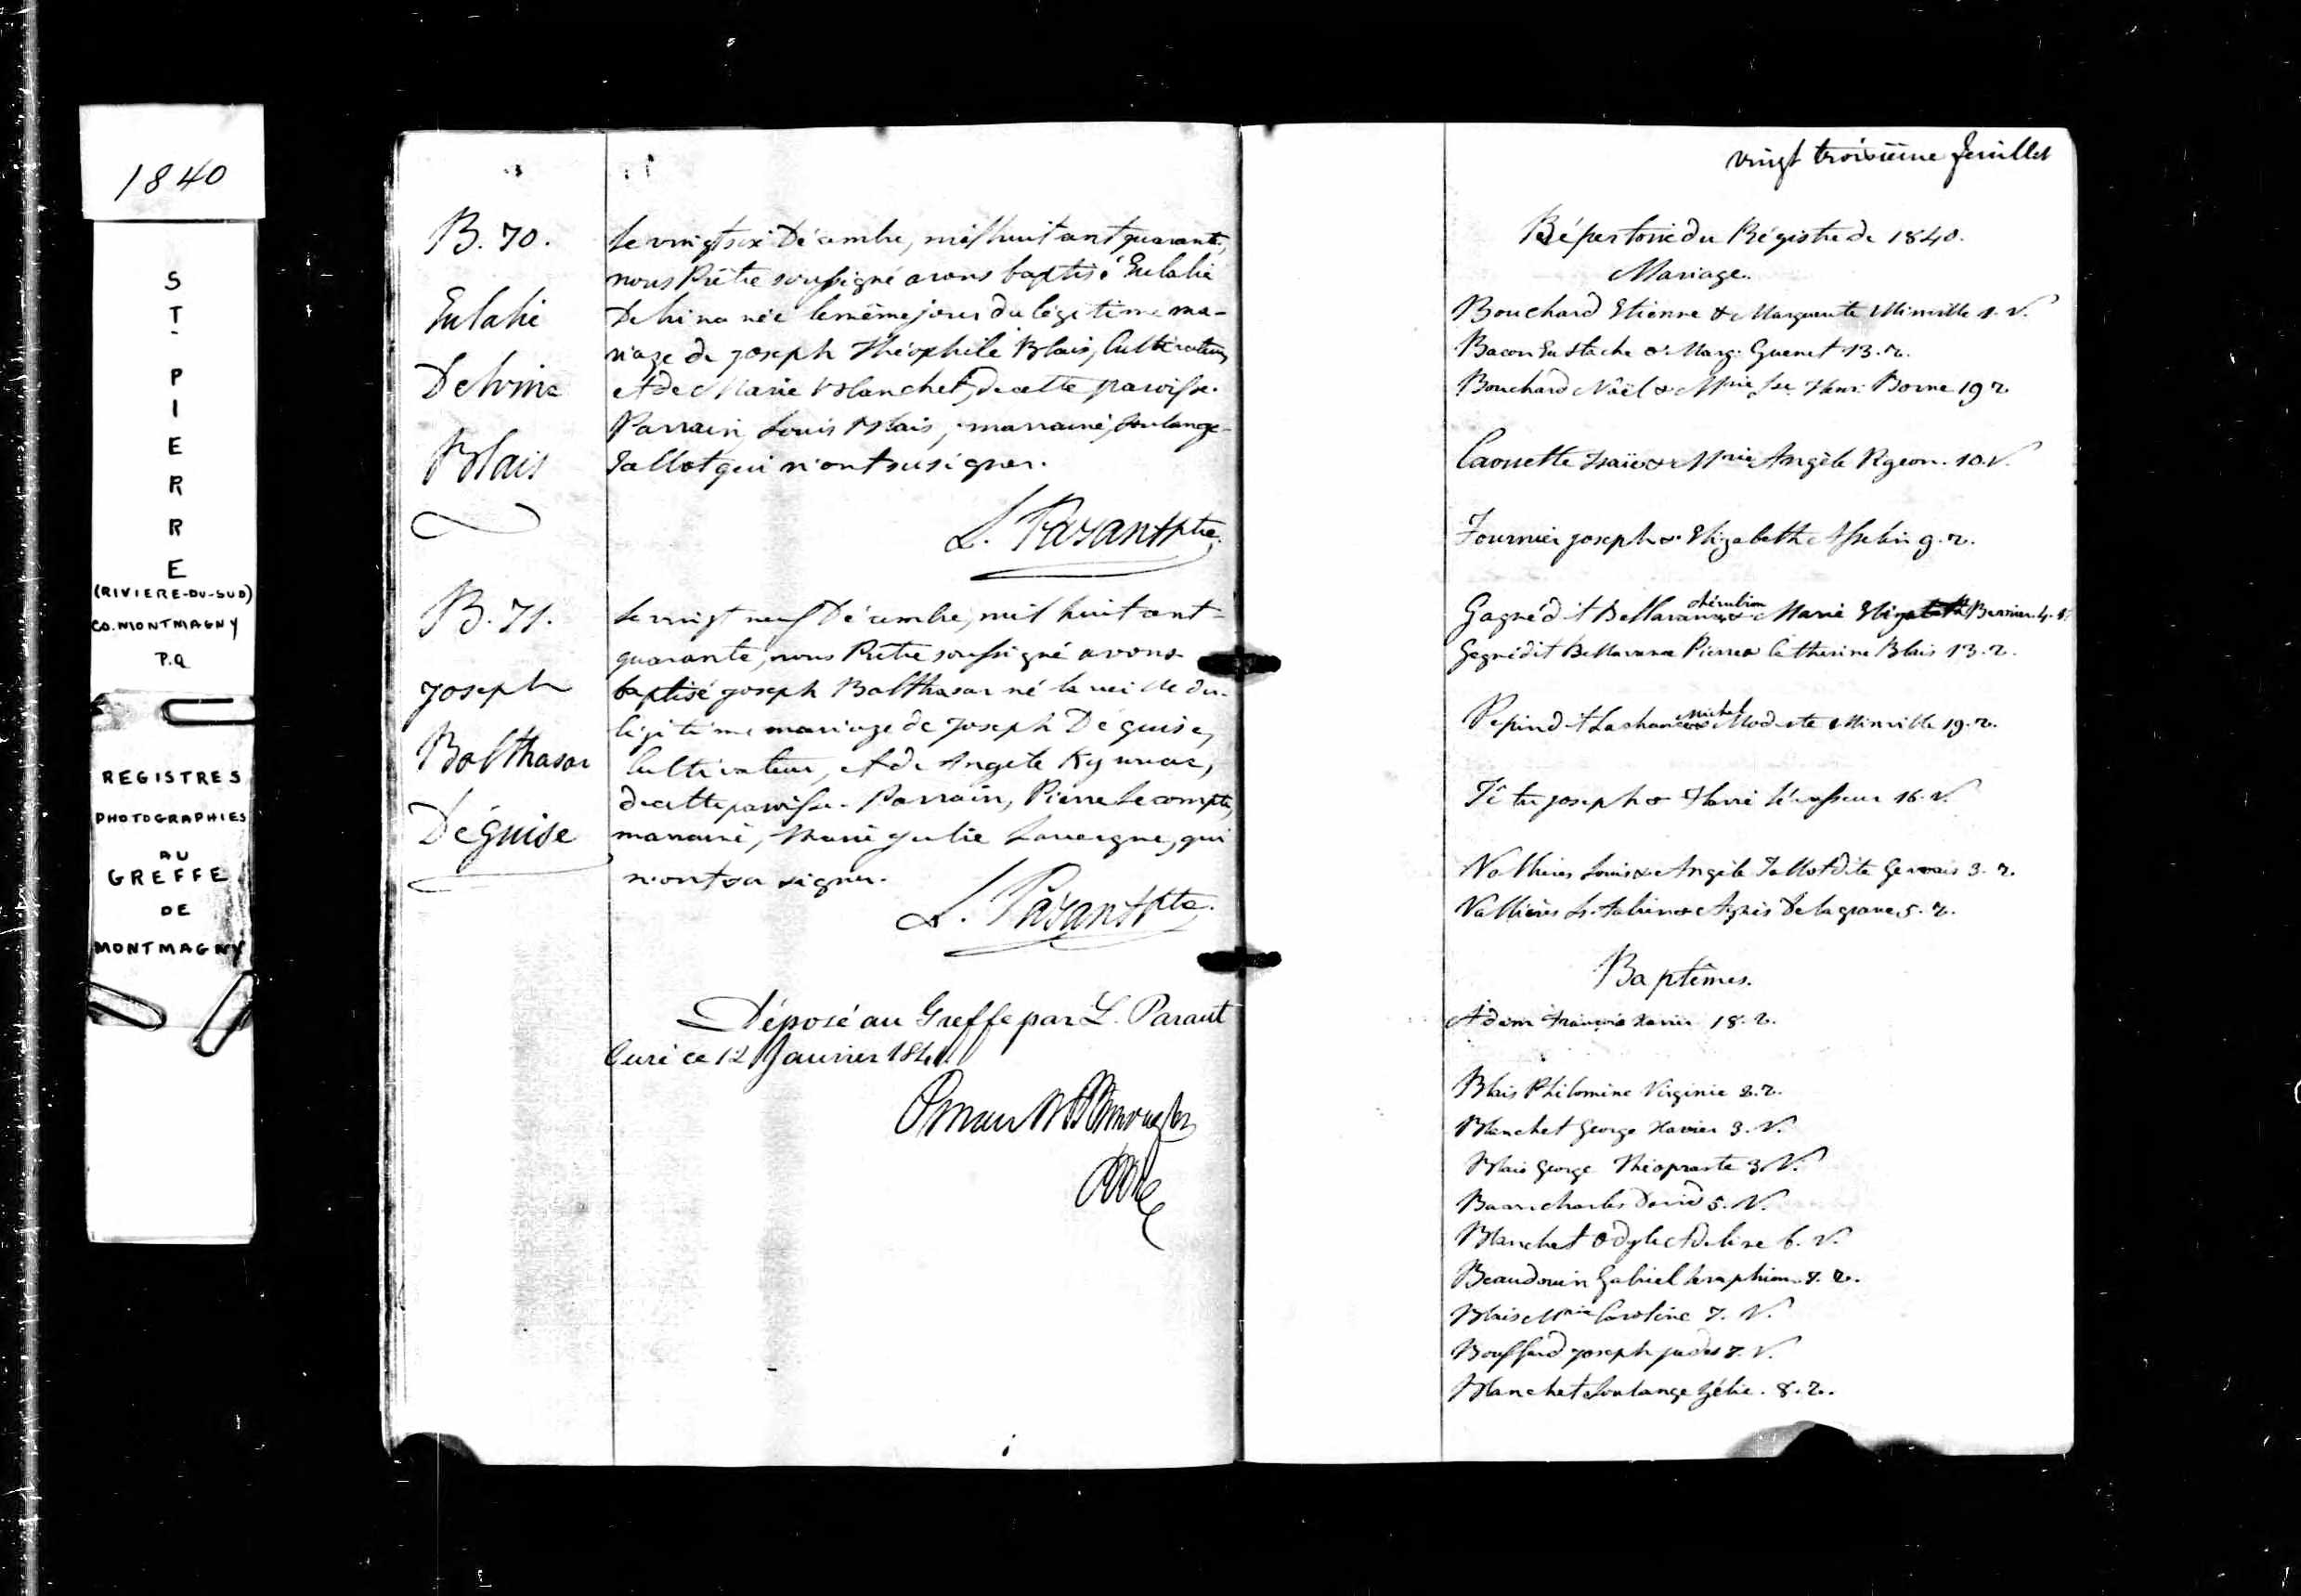 1840
ST-PIERRE
(RIVIERE-DU-SUD)
CO. MONTMAGNY
P.Q
REGISTRES
PHOTOGRAPHIES
AU
GREFFE
DE
MONTMAGNY
B. 70.
Eulalie
Delvina
Blais
Le vingt six Décembre, mil huit cent quarante,
nous Prêtre soussigné avons baptisé Eulalie
Delvina née le même jour du légitime ma-
riage de Joseph Théophile Blais, Cultivateur,
et de Marie Blanchet, de cette paroisse.
Parrain, Louis Blais, marraine, Soulange
Tallot qui n'ont su signer.
L. Parant Ptre.
B. 71.
Joseph
Balthasar
Déguise
Le vingt neuf Décembre, mil huit cent-
quarante, nous Prêtre soussigné avons
baptisé Joseph Balthasar né la veille du
légitime mariage de Joseph Déguise,
Cultivateur, et de Angele
de cette paroisse. Parrain, Pierre Lecompte,
marraine, Marie Julie Lavergne, qui
n'ont su signer.
L. Parant Ptre.
Déposé au Greffe par L. Parant
Curé ce 12 Janvier 1841
vingt troisième feuillet
Répertoire du Régistre de 1840.
Mariage.
Bouchard Etienne & Marguerite Minville 1. V.
Bacon Eustache & Marg. Guenet 13. r.
Bouchard Noël & Mrie Borne 19 r.
Caouette Isaïe & Mrie Angèle Pigeon. 10. V.
Fournier Joseph & Elizabeth Asselin 9. r.
Gagné dit Bellavance Chérubim & Marie Elizabeth Bernier. 4.
Gagné dit Bellavance Pierre & Catherine Blais 13. r.
Pepin dit Lachance Michel & Modeste Minville 19. r.
Têtu Joseph & Levasseur 16. V.
Vallières Louis & Angèle Tallot dite Gervais 3. r.
Vallières & Agnès Delagrave 5. r.
Baptêmes.
Adam François Xavier 18. r.
Blais Philomine Virginie 2. r.
Blanchet George Xavier 3. V.
Blais George Théopraste 3. V.
Bacon Charles David 5. V.
Blanchet Odyle Adeline 6. V.
Beaudouin Gabriel Seraphim 7. r.
Blais Mrie Caroline 7. V.
Bouffard Joseph Judes 7. V.
Blanchet Soulange Zélie. 8. r.